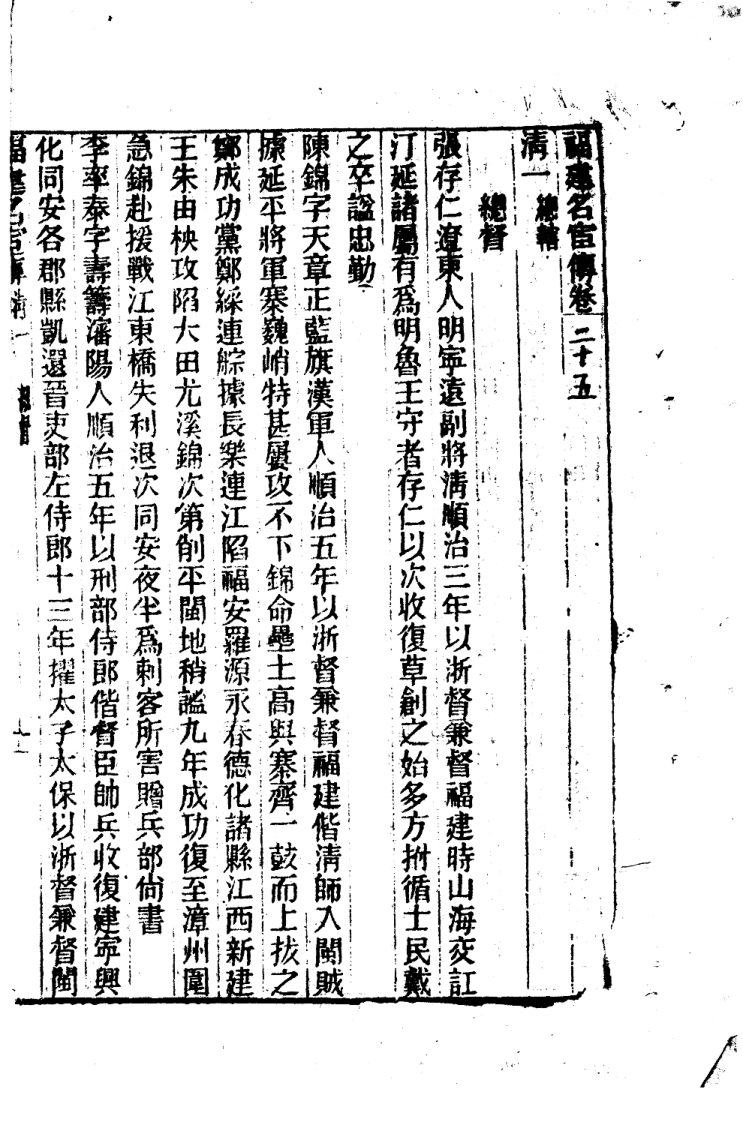 福建名宦傳卷二十五
清一 總轄
總督
張存仁遼東人明寧遠副將清順治三年以浙督兼督福建時山海交訌
汀延諸屬有爲明魯王守者存仁以次收復草創之始多方拊循士民戴
之卒諡忠勤
陳錦字天章正藍旗漢軍人順治五年以浙督兼督福建偕清師入閩賊
據延平將軍寨巍峭特甚屢攻不下錦命壘土高與寨齊一鼓而上拔之
鄭成功黨鄭綵連綜據長樂連江陷福安羅源永春德化諸縣江西新建
王朱由梜攻陷大田尤溪錦次第削平閩地稍謐九年成功復至漳州圍
急錦赴援戰江東橋失利退次同安夜半爲刺客所害贈兵部尙書
李率泰字壽籌瀋陽人順治五年以刑部侍郎偕督臣帥兵收復建寧興
化同安各郡縣凱還晉吏部左侍郎十三年擢太子太保以浙督兼督閩
福建名宦傳 清一 總督 一